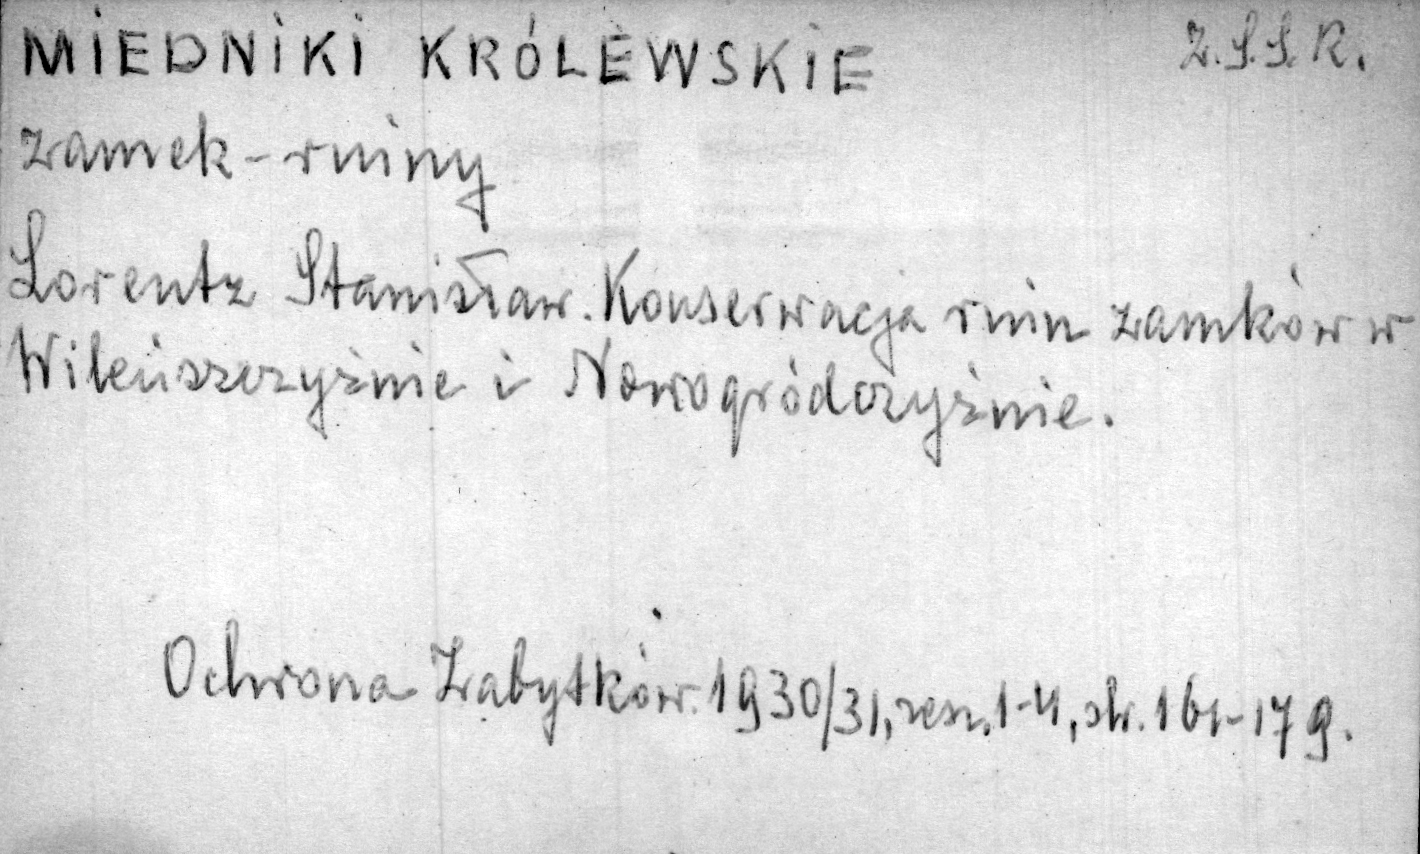 MIEDNIKI KRÓLEWSKIE Z.S.S.R.
zamek - ruiny
Lorentz Stanisław. Konserwacja ruin zamków w
Wileńszczyźnie i Nowogródczyźnie.
Ochrona Zabytków. 1930/31, zesz. 1-4, str. 161-179.